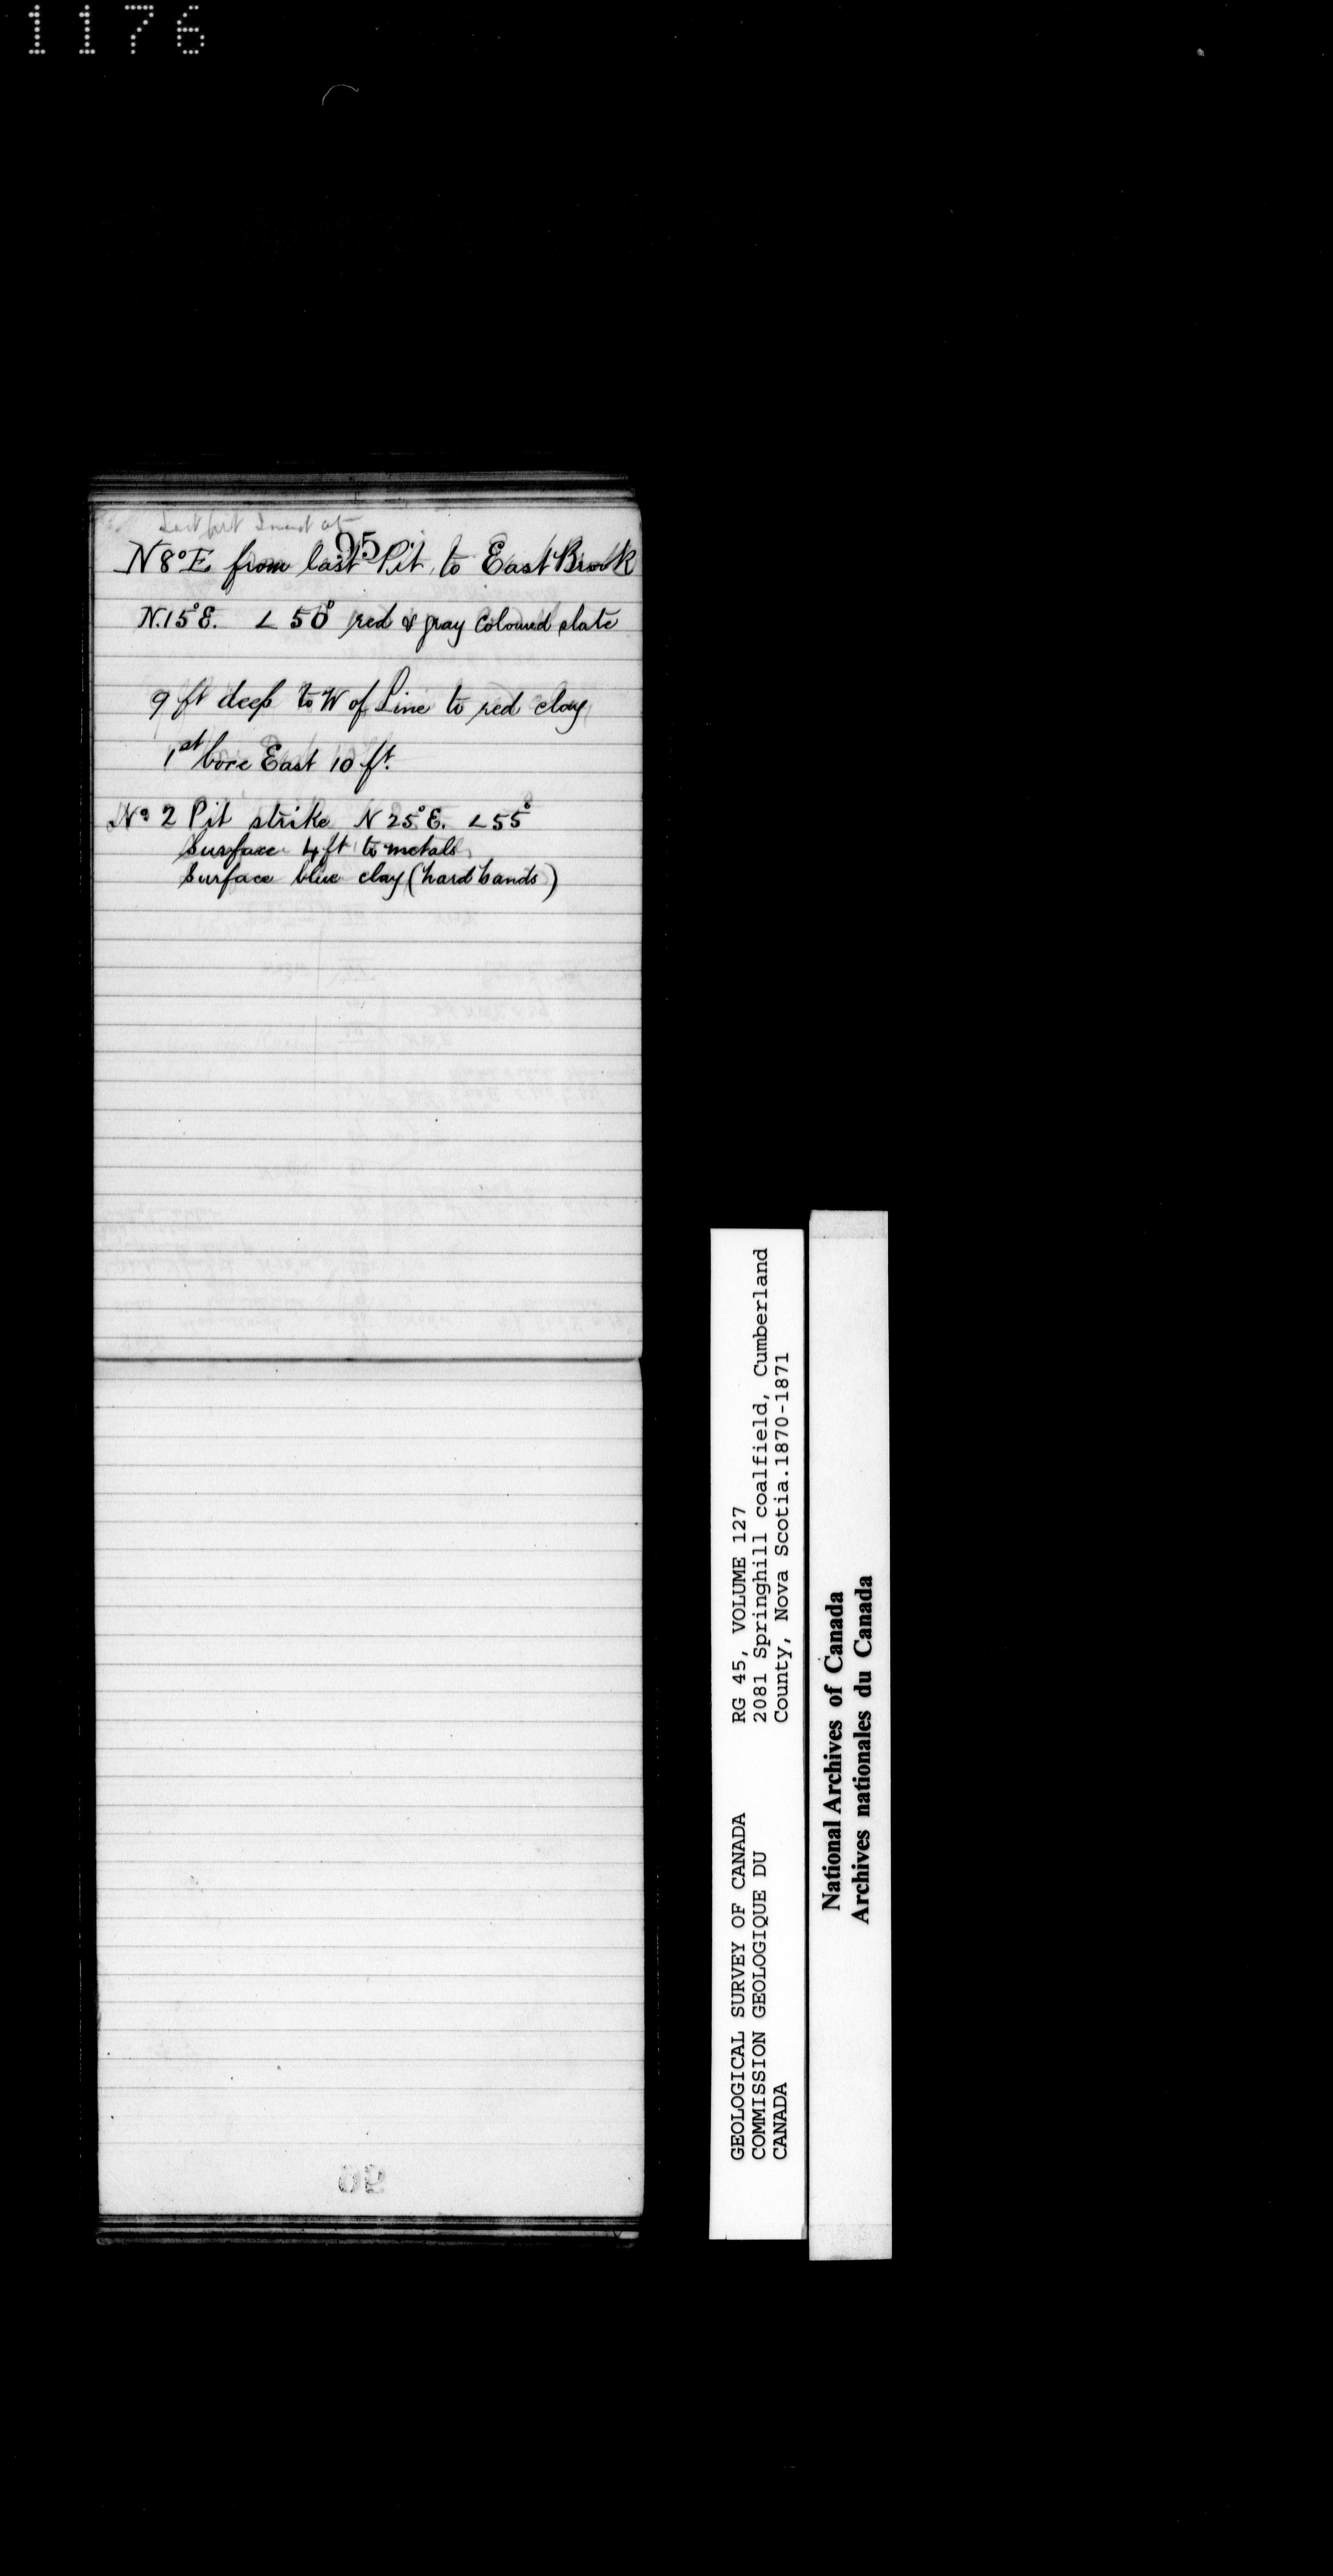 1176
95
N 8° E from last Pit, to East Brook
N. 15° E. ∠ 50° red & gray coloured slate
9 ft deep to W of Line to red clay
1st bore East 10 ft.
No 2 Pit strike N 25° E. ∠ 55°
Surface 4 ft to metals
Surface blue clay (hard bands)
GEOLOGICAL SURVEY OF CANADA
COMMISSION GEOLOGIQUE DU
CANADA
RG 45, VOLUME 127
2081 Springhill coalfield, Cumberland
County, Nova Scotia.1870-1871
National Archives of Canada
Archives nationales du Canada